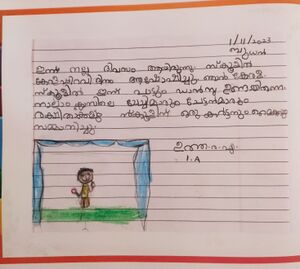 1/11/2023
ബുധൻ
ഇന്ന് നല്ല ദിവസം ആയിരുന്നു. സ്കൂളിൽ
കേരളപ്പിറവി ദിനം ആഘോഷിച്ചു. ഞാൻ കേരള
സ്കൂളിൽ ഇന്ന് പാട്ടും ഡാൻസും ഉണ്ടായിരുന്നു.
നാലാം ക്ലാസിലെ ചേച്ചിമാരും ചേട്ടൻമാരും
സ്കൂളിന് ഒരു കർട്ടനും മൈക്കും
സമ്മാനിച്ചു.
1. A